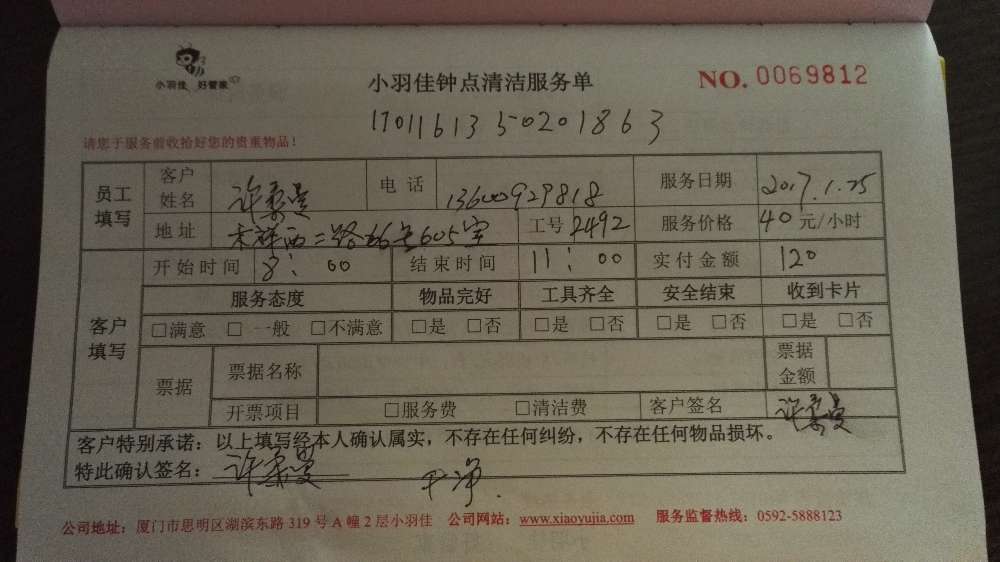 小羽佳 好管家
小羽佳钟点清洁服务单
NO. 0069812
1701161350201863
请您于服务前收拾好您的贵重物品！
员工填写 客户姓名 许 曼 电话 13600929818 服务日期 2017.1.25
地址 祥西二路66号605室 工号 2492 服务价格 40 元/小时
客户填写 开始时间 8:00 结束时间 11:00 实付金额 120
服务态度 物品完好 工具齐全 安全结束 收到卡片
□满意 □一般 □不满意 □是 □否 □是 □否 □是 □否 □是 □否
票据 票据名称 票据金额
开票项目 □服务费 □清洁费 客户签名 许 曼
客户特别承诺：以上填写经本人确认属实，不存在任何纠纷，不存在任何物品损坏。
特此确认签名：许 曼 干净.
公司地址：厦门市思明区湖滨东路 319 号 A 幢 2 层小羽佳 公司网站：www.xiaoyujia.com 服务监督热线：0592-5888123